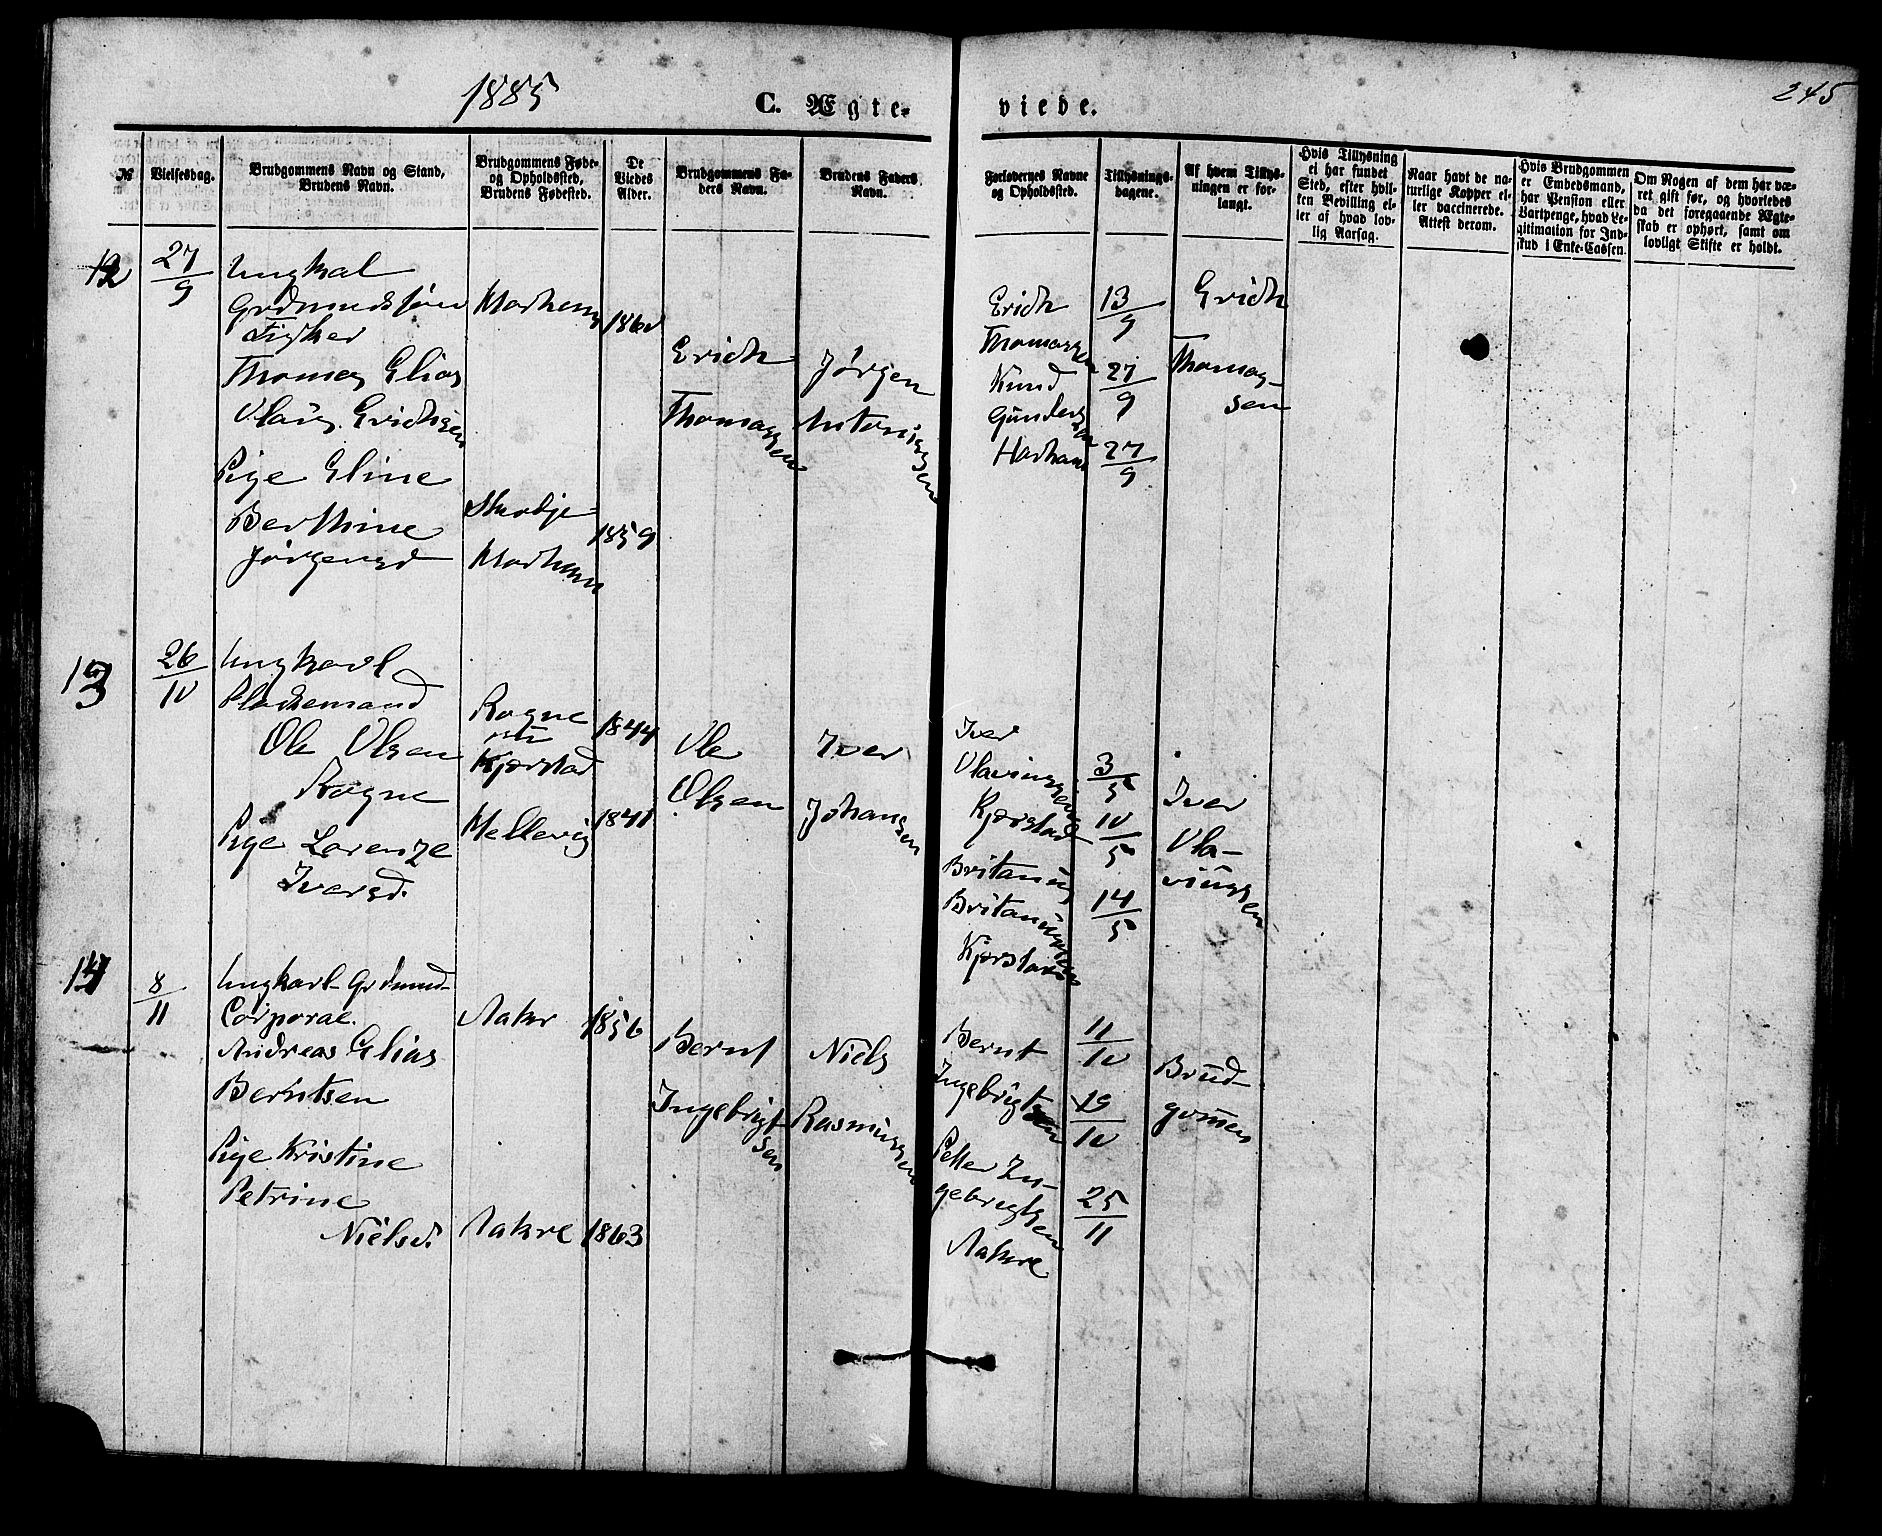 1885
C. Ægte-
viede.
245
№
Vielsesdag.
Brudgommens Navn og Stand,
Brudens Navn.
Brudgommens Føde-
og Opholdssted,
Brudens Fødested.
De
Viedes
Alder.
Brudgommens Fa-
ders Navn.
Brudens Faders
Navn.
Forlovernes Navne
og Opholdssted.
Tillysnings-
dagene.
Af hvem Tillys-
ningen er for-
langt.
Hvis Tillysning
ei har fundet
Sted, efter hvil-
ken Bevilling el-
ler af hvad lov-
lig Aarsag.
Naar havt de na-
turlige Kopper el-
ler vaccinerede.
Attest derom.
Hvis Brudgommen
er Embedsmand,
har Pension eller
Vartpenge, hvad Le-
gitimation for Ind-
skud i Enke-Cassen.
Om Nogen af dem har væ-
ret gift før, og hvorledes
da det foregaaende Ægte-
skab er ophørt, samt om
lovligt Skifte er holdt.
12
27/9
Ungkal
Grdmandssøn
Fisker
Thomas Elias
Olaus Erichsen
Pige Eline
Berthine
Jørgensd
Skodje
1860
1859
Erich
Thomassen
Jørgen
Antoniussen
Erich
Thomassen
Knud
Gundersen
13/9
27/9
27/9
Erich
Thomas-
sen
13
26/10
Ungkarl
Pladsemand
Ole Olsen
Rogne
Pige Lorenze
Iversd.
Rogne
Kjerstad
Hellevig
1844
1841
Ole
Olsen
Iver
Johansen
Iver
Olavinssen
Kjerstad
Britanius
Britaniussen
Kjerstad
3/5
10/5
14/5
Iver
Ola-
vinssen
14
8/11
Ungkarl Grdmand
Corporal
Andreas Elias
Berntsen
Pige Kristine
Petrine
Nielsd.
Aakre
Aakre
1856
1863
Bernt
Ingebrigt-
sen
Niels
Rasmussen
Bernt
Ingebrigtsen
Petter In-
gebrigtsen
Aakre
11/10
19/10
25/11
Brud-
gomen